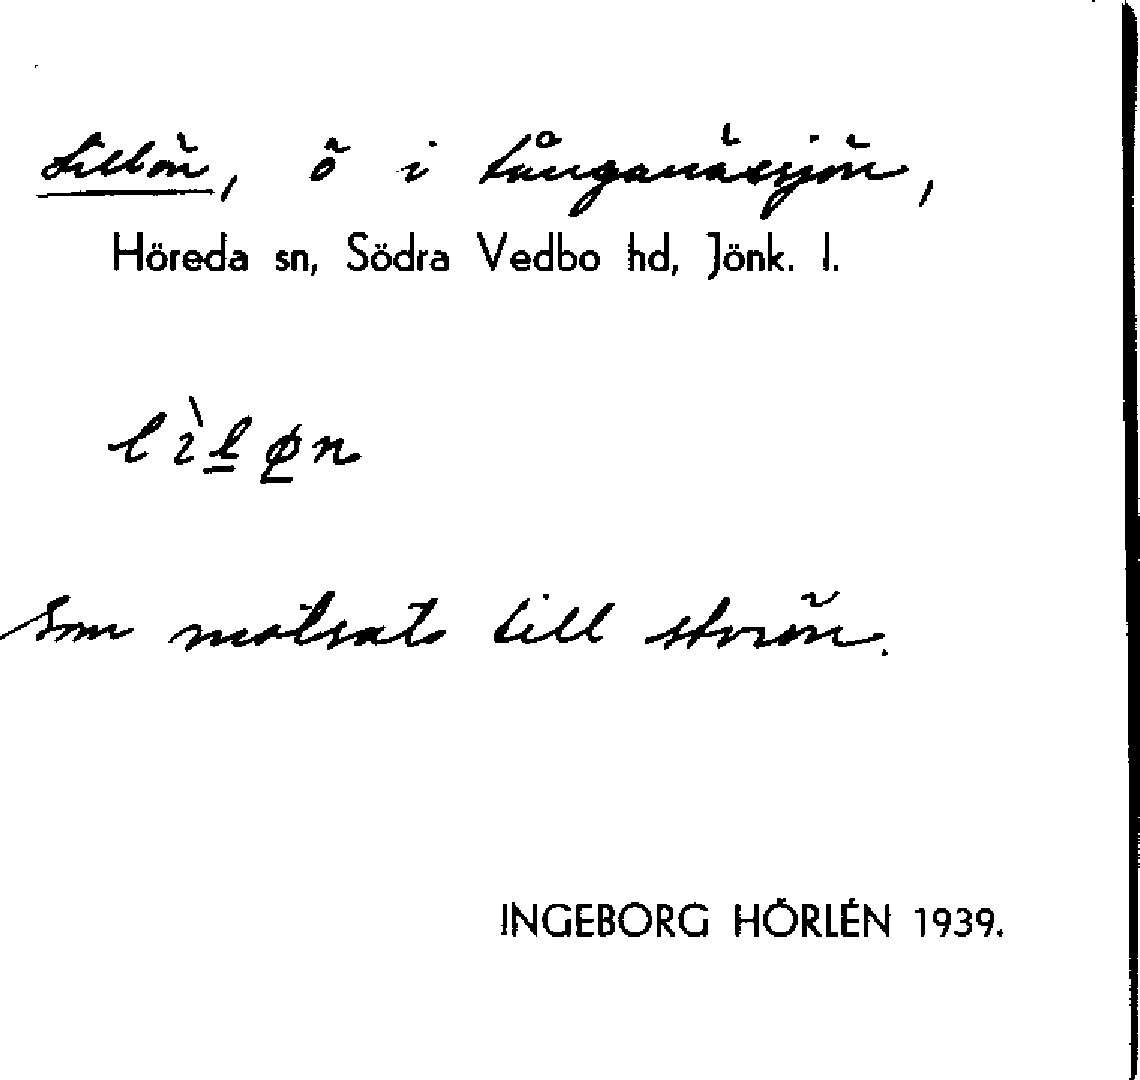 Lillön, ö i Tånganässjön,
Höreda sn, Södra Vedbo hd, Jönk. l.
lìløn
Som motsats till storön.
INGEBORG HÖRLÉN 1939.